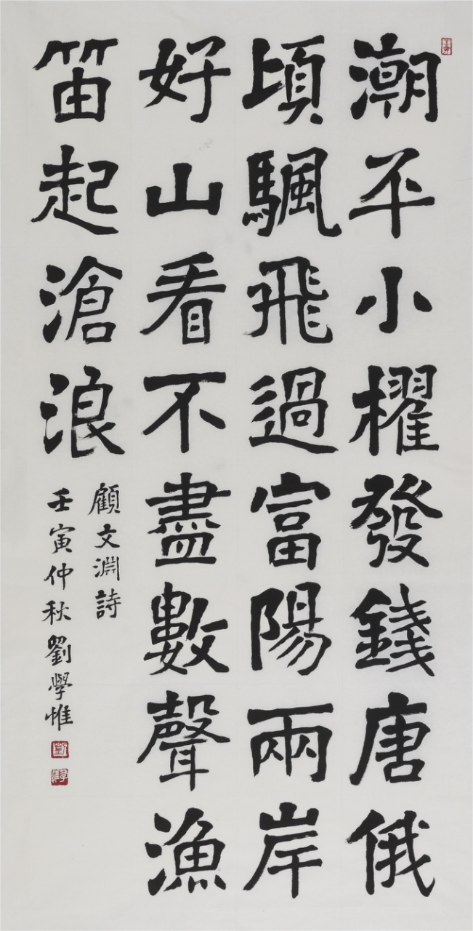 潮平小櫂發錢唐俄
頃颿飛過富陽兩岸
好山看不盡數聲漁
笛起滄浪
顧文淵詩
壬寅仲秋劉學惟